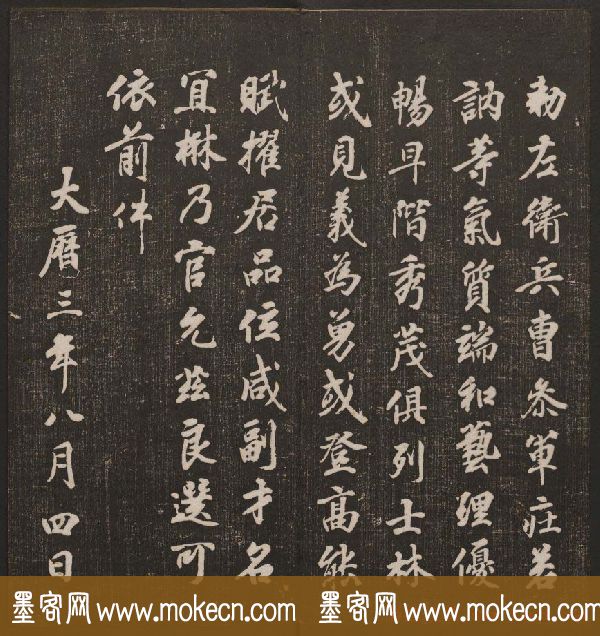 勅左衛兵曹叅軍莊若
訥等氣質端和藝理優
暢早階秀茂俱列士林
或見義為勇或登高能
賦擢居品位咸副才名
宜楙乃官允茲良選可
依前件
大曆三年八月四日
墨客网 www.mokecn.com 墨客网 www.mokecn.com